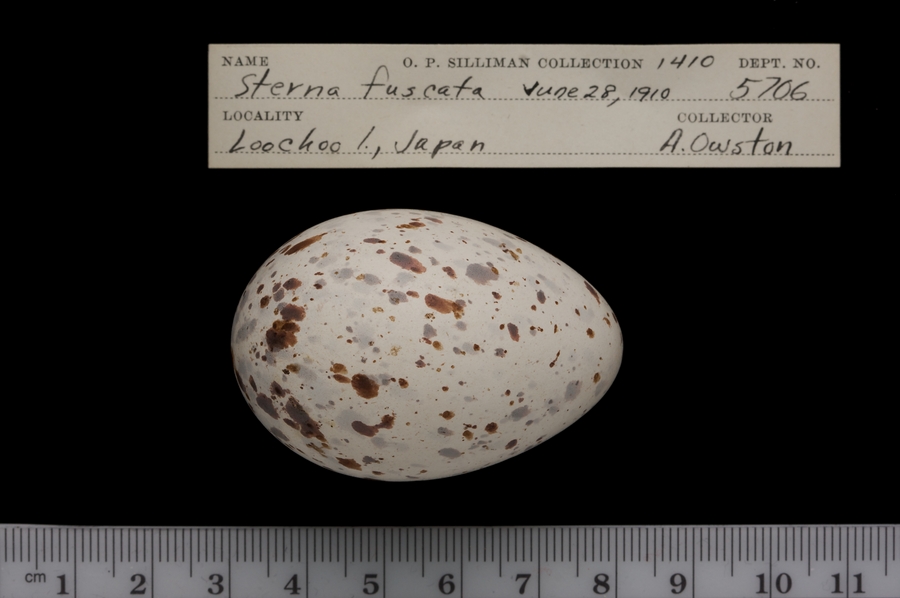 NAME O. P. SILLIMAN COLLECTION 1410 DEPT. NO.
Sterna fuscata June 28, 1910 5706
LOCALITY COLLECTOR
Loochoo I., Japan A. Owston
cm 1 2 3 4 5 6 7 8 9 10 11